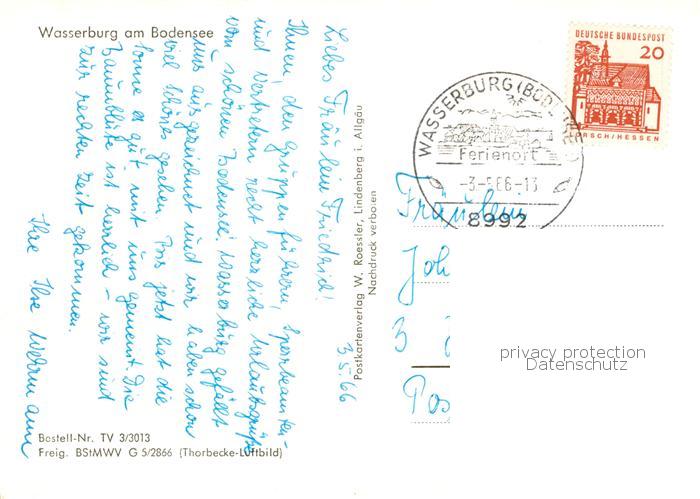 Wasserburg am Bodensee
3.5.66
Liebes Fräulein Friedrich!
Ihnen, den Gruppenführern, Sportbeamten-
und Vertretern recht herzliche Urlaubsgrüße
vom schönen Bodensee! Wasserburg gefällt
uns ausgezeichnet und wir haben schon
viel Schönes gesehen. Bis jetzt hat die
Sonne es gut mit uns gemeint. Die
Baumblüte ist herrlich - wir sind
zur rechten Zeit gekommen.
Ihre Ilse Wehrmann
Bestell-Nr. TV 3/3013
Freig. BStMWV G 5/2866 (Thorbecke-Luftbild)
Postkartenverlag W. Roessler, Lindenberg i. Allgäu
Nachdruck verboten
DEUTSCHE BUNDESPOST
20
RSCH/HESSEN
WASSERBURG (BODENSEE)
Ferienort
-3-5.66-13
8992
Fräulein
Joh
3
Pos
privacy protection
Datenschutz